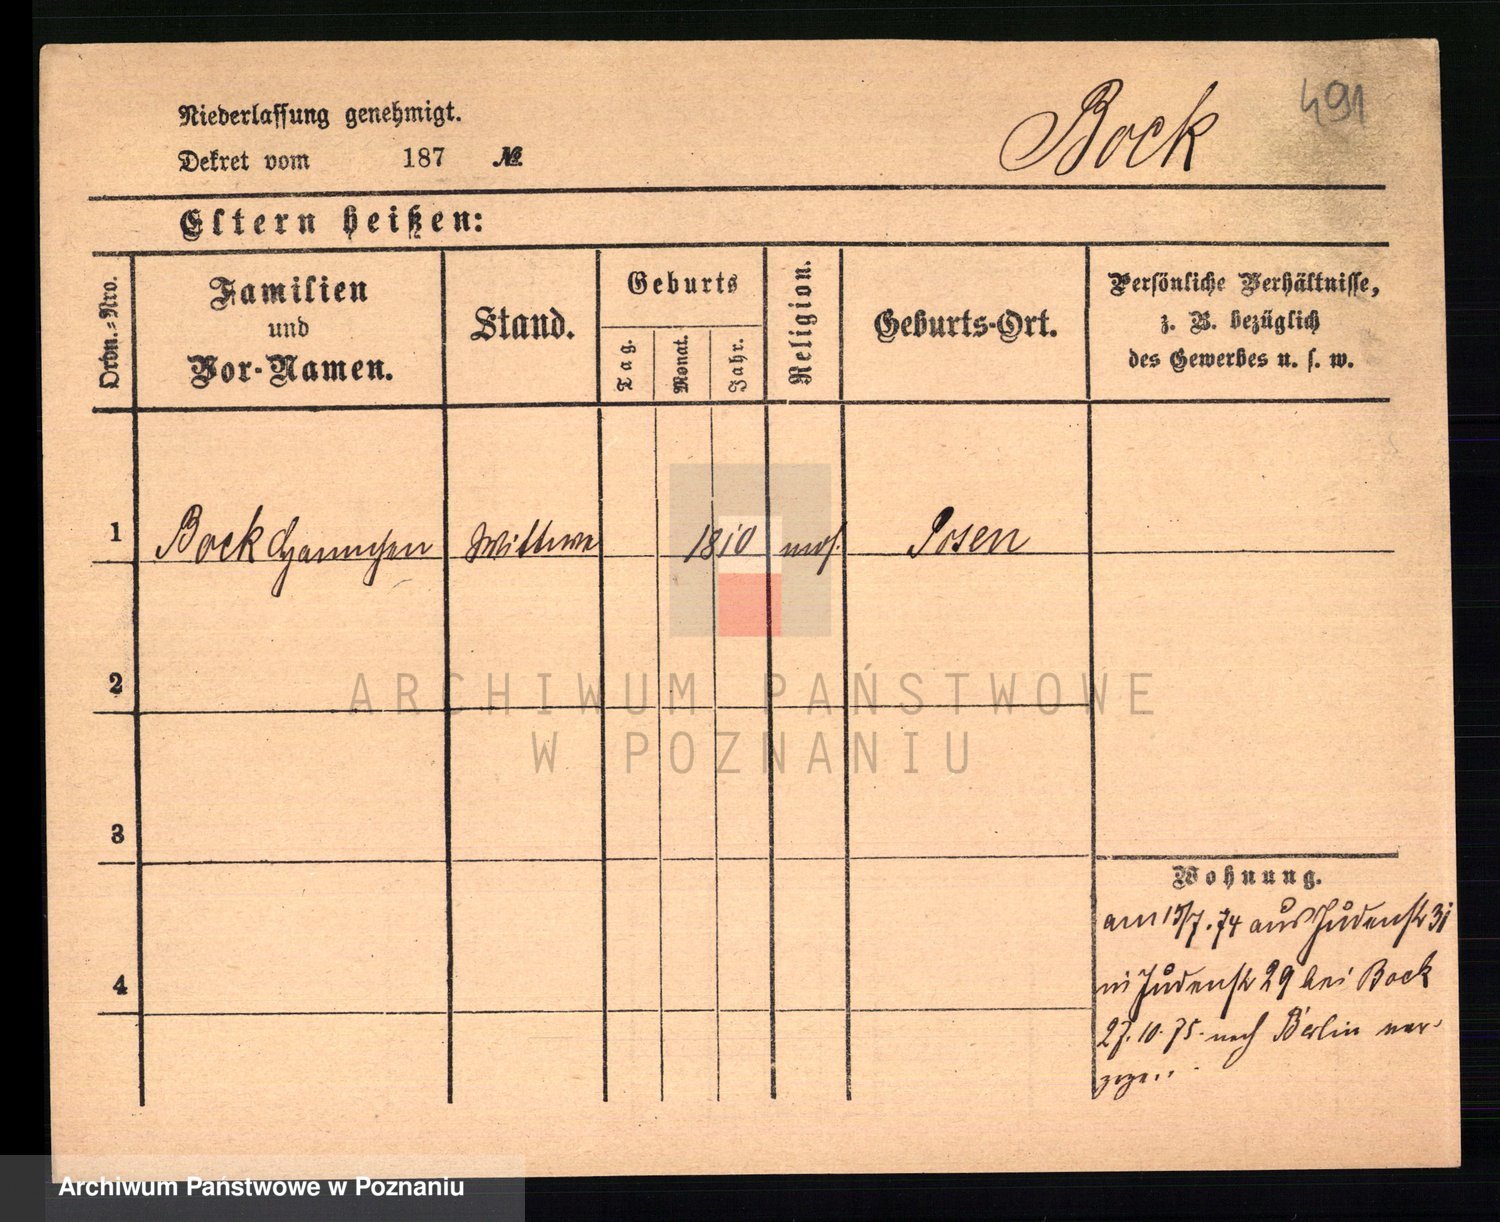 491
Bock
Niederlassung genehmigt.
Dekret vom 187 №
Eltern heißen:
Ordn.-Nro.
Familien
und
Vor-Namen.
Stand.
Geburts
Tag.
Monat.
Jahr.
Religion.
Geburts-Ort.
Persönliche Verhältnisse,
z. B. bezüglich
des Gewerbes u. s. w.
1 Bock Wittwe 1810 mos. Posen
2
3
4
Wohnung.
am 15/7. 74 aus Judenstr 31
in Judenstr 29 bei Bock
27. 10. 75. nach Berlin ver-
zogen.
ARCHIWUM PAŃSTWOWE
W POZNANIU
Archiwum Państwowe w Poznaniu